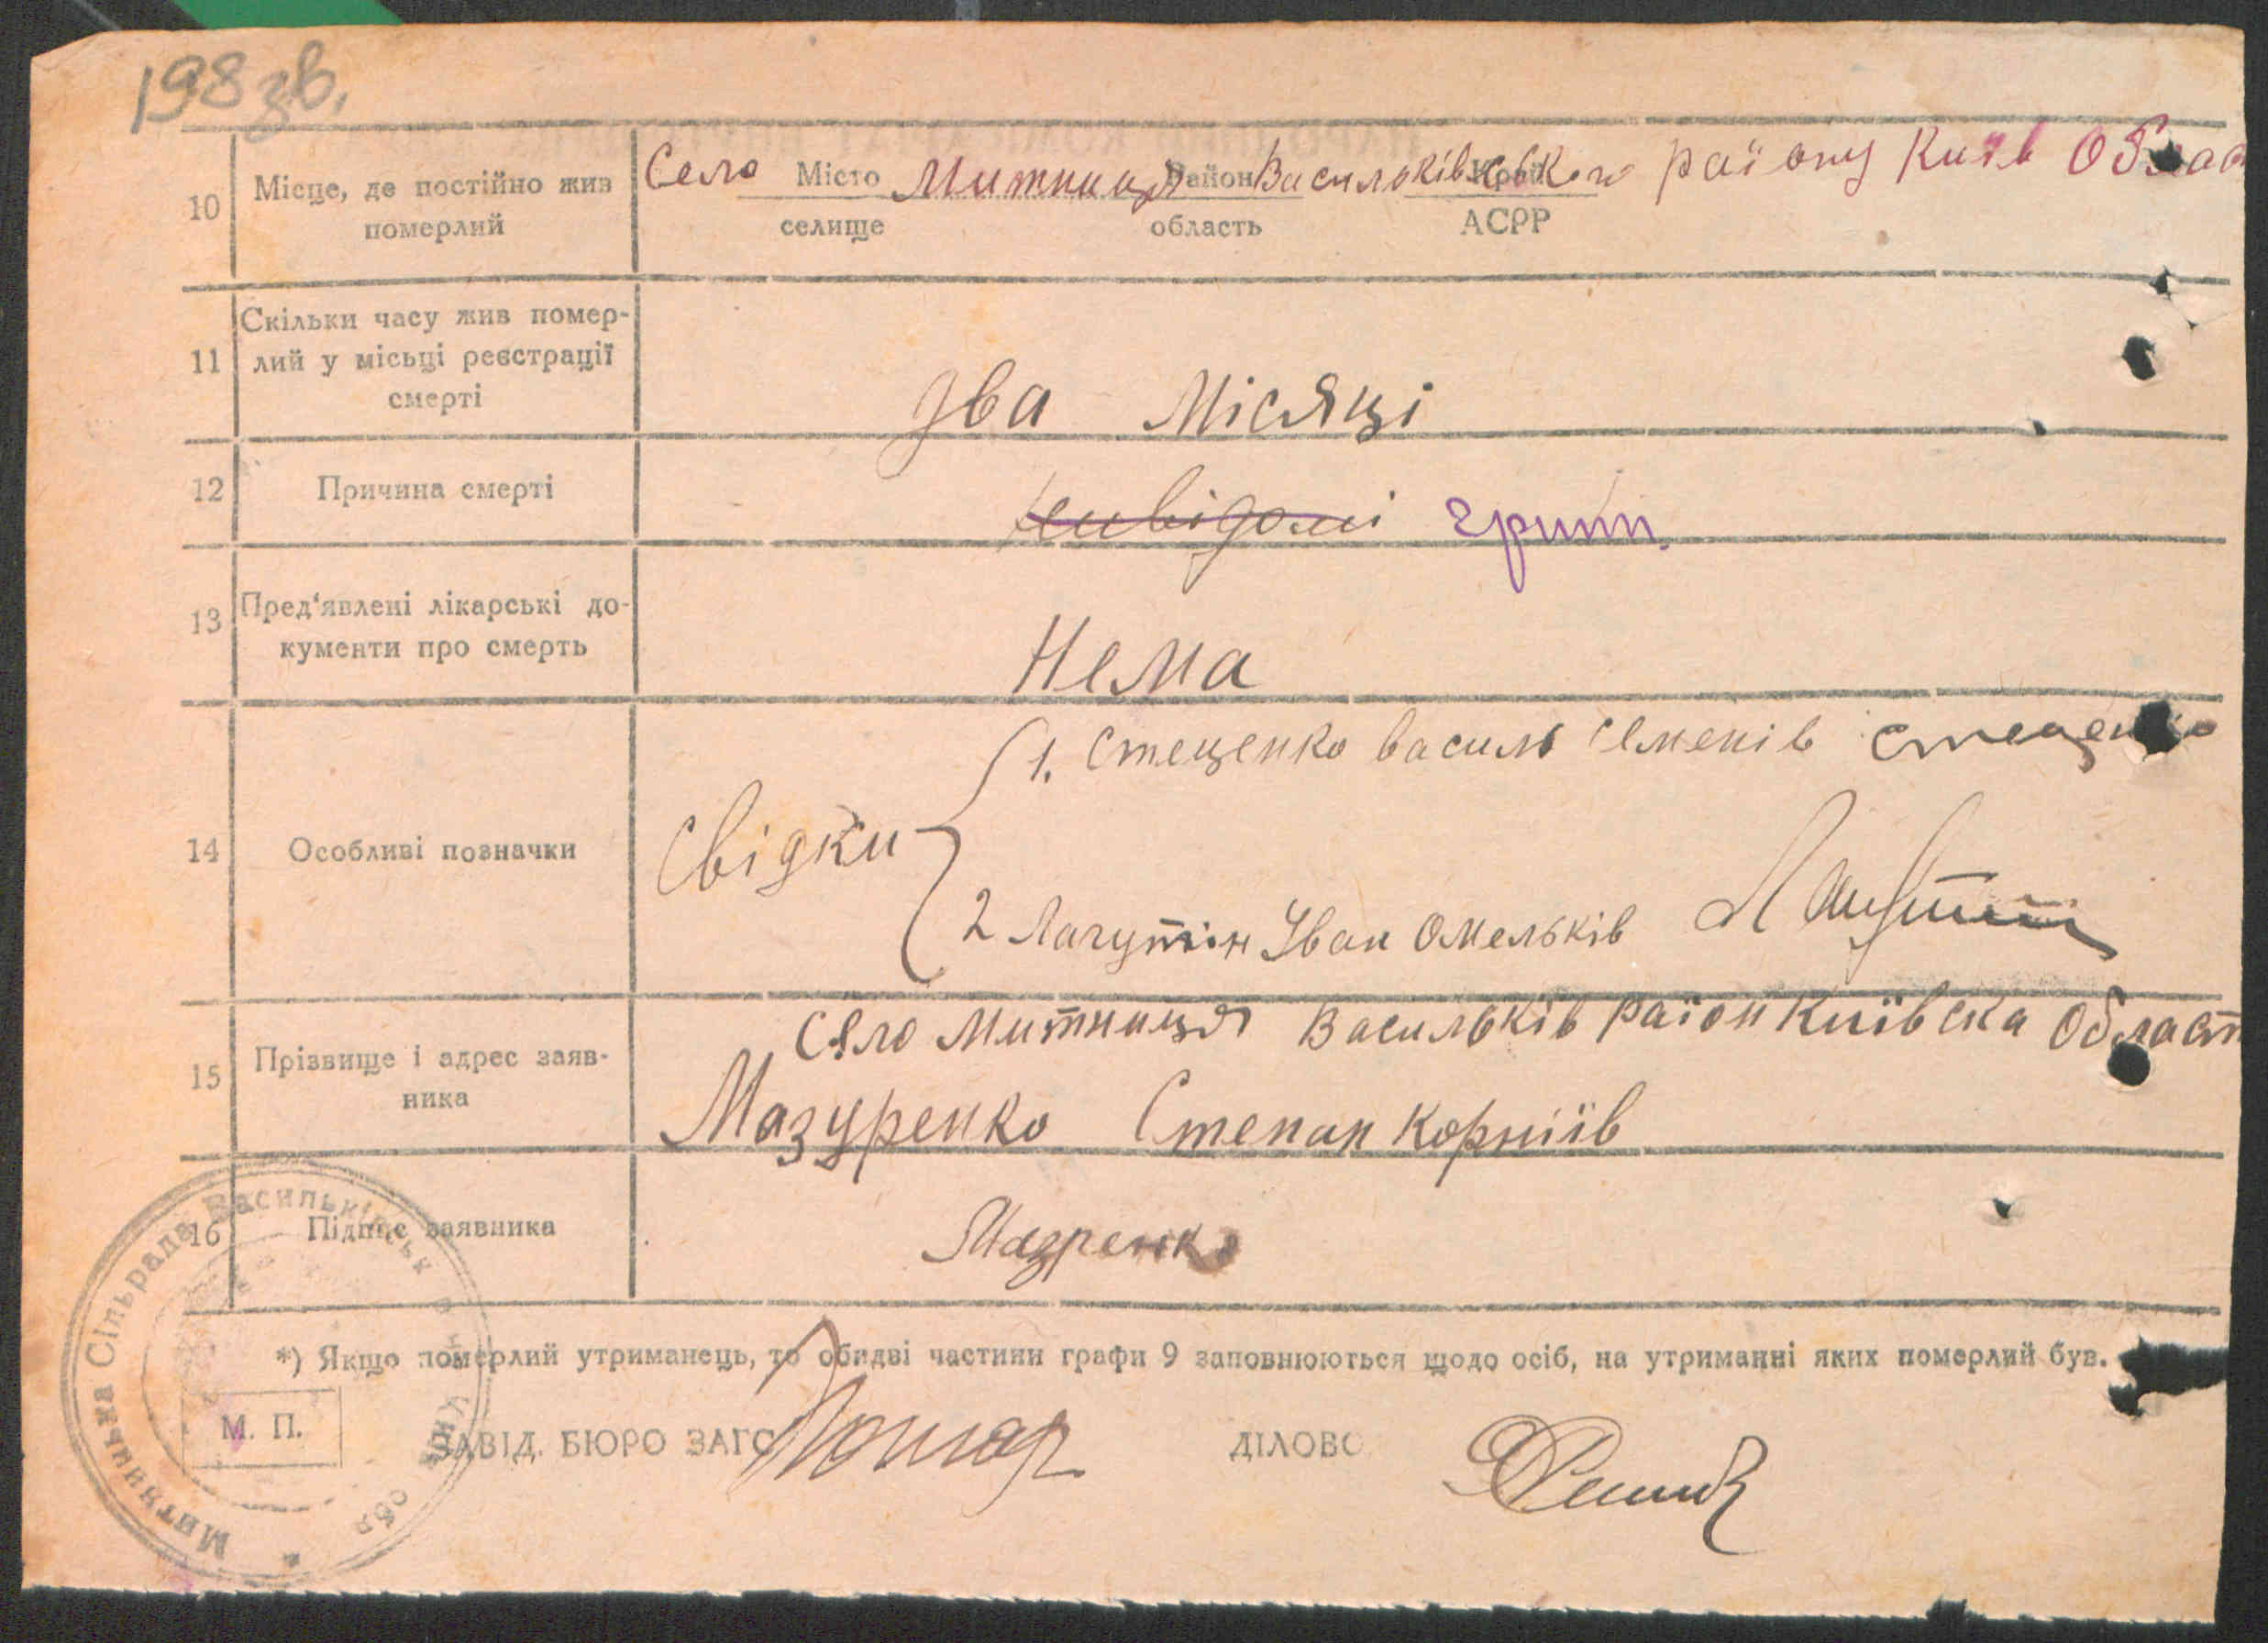 198 зв.
10 Місце, де постійно жив померлий
Село Місто Митниця Район Васильківського Край району Київ Облас
селище область АСРР
11 Скільки часу жив помер-
лий у місьці реєстрації
смерті
два Місяці
12 Причина смерті
невідомі грип.
13 Пред'явлені лікарські до-
кументи про смерть
Нема
14 Особливі позначки
Свідки
1. Стеценко Василь Семенів Стеценко
2 Лагутін Іван Омельків
15 Прізвище і адрес заяв-
ника
Село Митниця Васильків район Київска Област
Мазуренко Степан Корніїв
16 Підпис заявника
Мазренко
*) Якщо померлий утриманець, то обидві частини графи 9 заповнюються щодо осіб, на утриманні яких померлий був.
М. П.
ЗАВІД. БЮРО ЗАГС
ДІЛОВО
Митницька Сільрада Васильківськ Київ обл